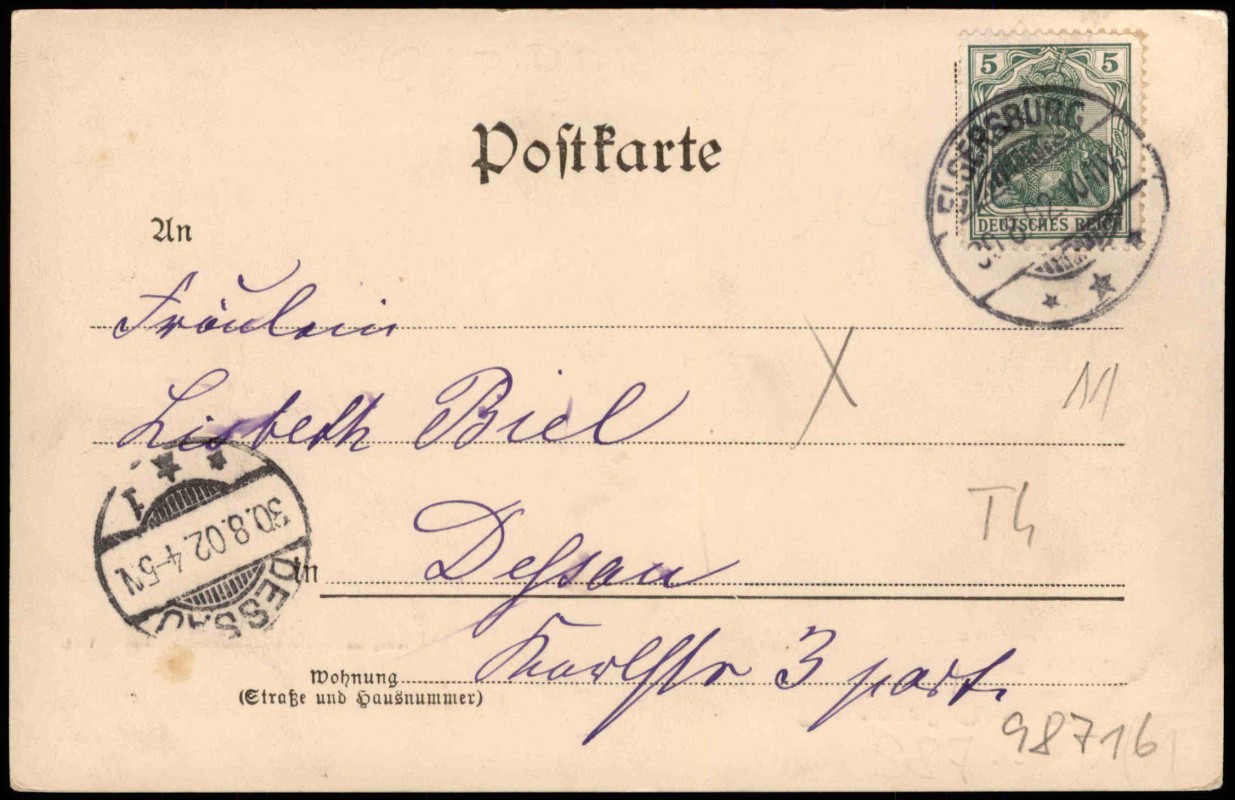 5 5
DEUTSCHES REICH
ELGERSBURG
Postkarte
An
Fräulein
Lisbeth Biel
11
Th
1
30.8.02.4-5N
DESSAU
in Dessau
Wohnung
(Straße und Hausnummer)
Karlstr 3 part.
98716